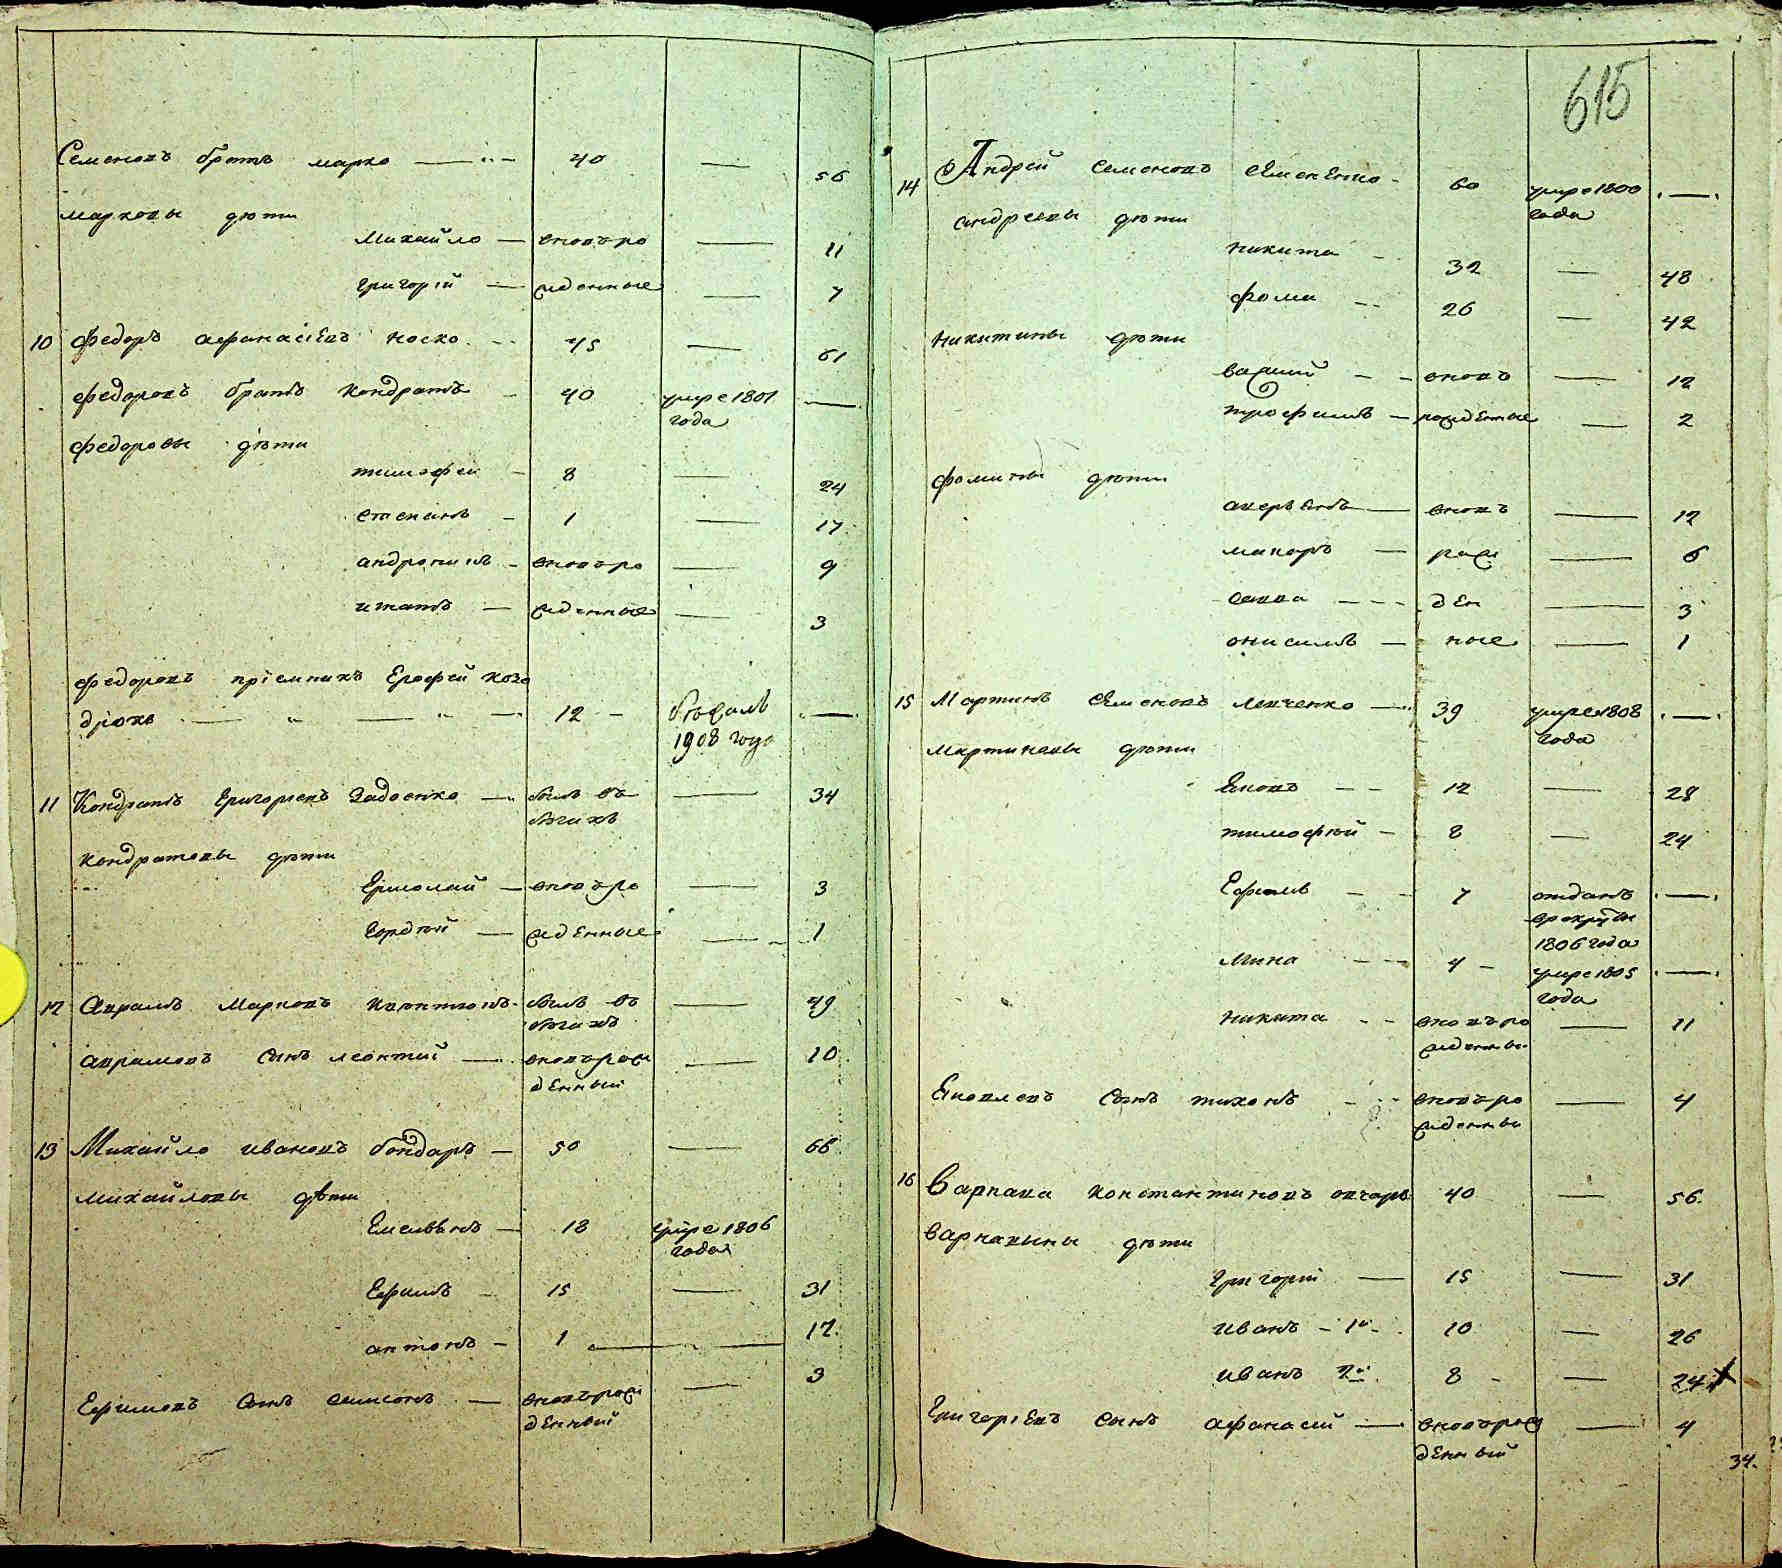 Семеновъ братъ марко 40 — 56
марковы дѣти
Михайло — вновъро — 11
григорій — жденные — 7
10 федоръ афанасіевъ носко 45 — 61
федоровъ братъ кондратъ 40 умре 1801 —
года
федоровы дѣти
тимофей — 8 — 24
степанъ — 1 — 17
андроникъ — вновъро — 9
игнатъ — жденные — 3
федоровъ пріемникъ Ерофей
12 — бѣжалъ —
1908 году
11 Кондратъ Григориевъ Задоенко — былъ въ — 34
бѣгахъ
кондратовы дѣти
Ермолай — вновъро — 3
Гордѣй — жденные — 1
12 Аврамъ Марковъ былъ въ — 49
бѣгахъ
аврамовъ сынъ леонтий — вновърож — 10
денный
13 Михайло ивановъ бондаръ — 50 — 66
михайловы дѣти
Емельянъ — 18 умре 1806
года
Ефимъ — 15 — 31
антонъ — 1 — 17
Ефимовъ сынъ самсонъ — вновърож — 3
денный
615
14 Андрей семеновъ семененко - 60 умре 1800 —
года
андреевы дѣти
никита - 32 — 48
фома -- 26 — 42
никитины дѣти
василий — вновъ — 12
трофимъ — рожденные — 2
фомины дѣти
аверянъ — вновъ — 12
макаръ — рож — 6
савва --- ден — 3
онисимъ — ные — 1
15 Мартинъ семеновъ левченко — 39 умре 1808 —
года
мартиновы дѣти
Яковъ -- 12 — 28
тимофѣй - 8 — 24
Ефимъ -- 7 отданъ —
врекруты
1806 года
Мина --- 4 - умре 1805 —
года
никита -- вновъро — 11
жденны
Яковлевъ сынъ тихонъ - вновъро — 4
жденны
16 Варнава константиновъ овчаръ 40 — 56
варнавины дѣти
григорий — 15 — 31
иванъ - 1й - 10 — 26
иванъ 2й 8 - — 24
григоріевъ сынъ афанасий — вновърож — 4
денный
34.